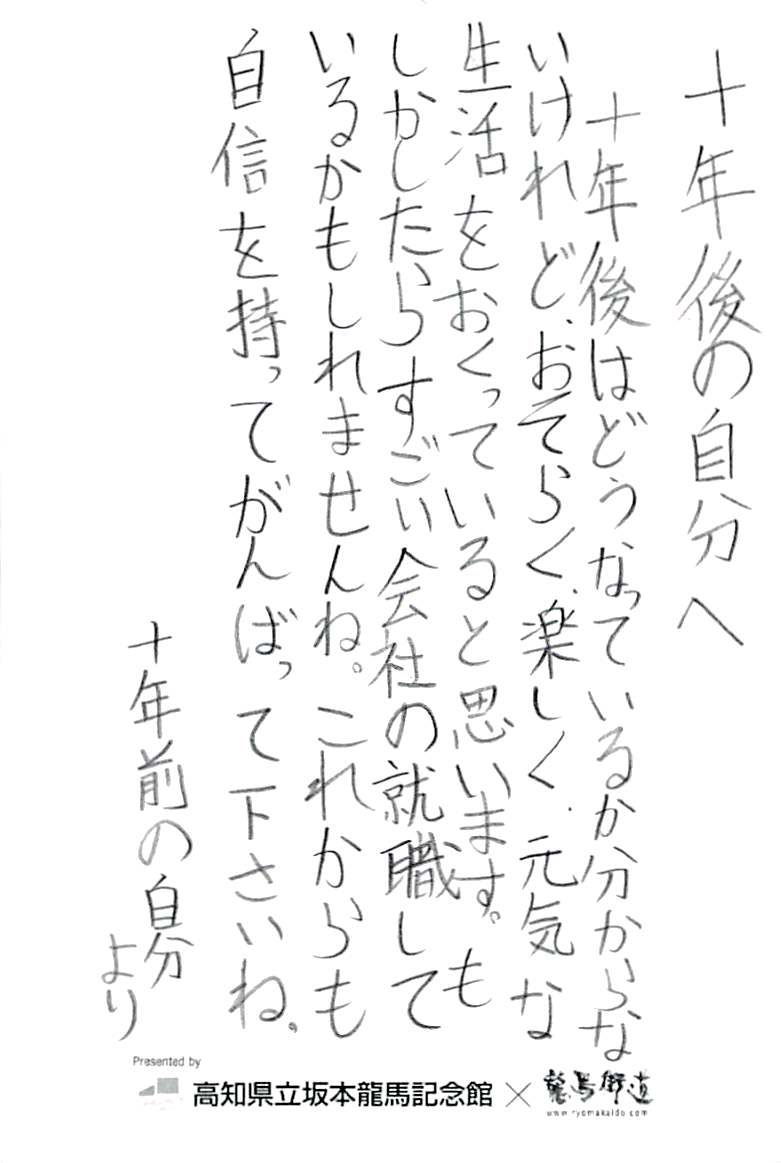 十年後の自分へ
十年後はどうなっているか分からな
いけれど、おそらく、楽しく、元気な
生活をおくっていると思います。も
しかしたらすごい会社の就職して
いるかもしれませんね。これからも
自信を持ってがんばって下さいね。
十年前の自分
より
Presented by
高知県立坂本龍馬記念館×龍馬街道
www.ryomakaido.com